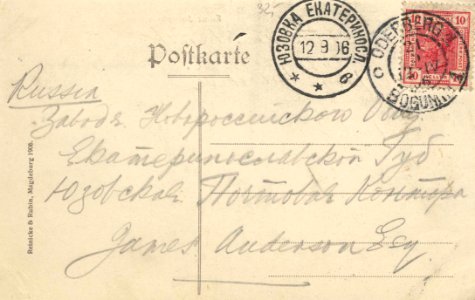 ЮЗОВКА ЕКАТЕРИНОСЛ.
12 9 06
в
Postkarte
ODERBERG
BOGUMIN
10 10
Russia
Заводъ Новороссийского Общ
Екатеринославской Губ
Юзовская Почтовая Контора
James Anderson Esq.
Reinicke & Rubin, Magdeburg 1908.